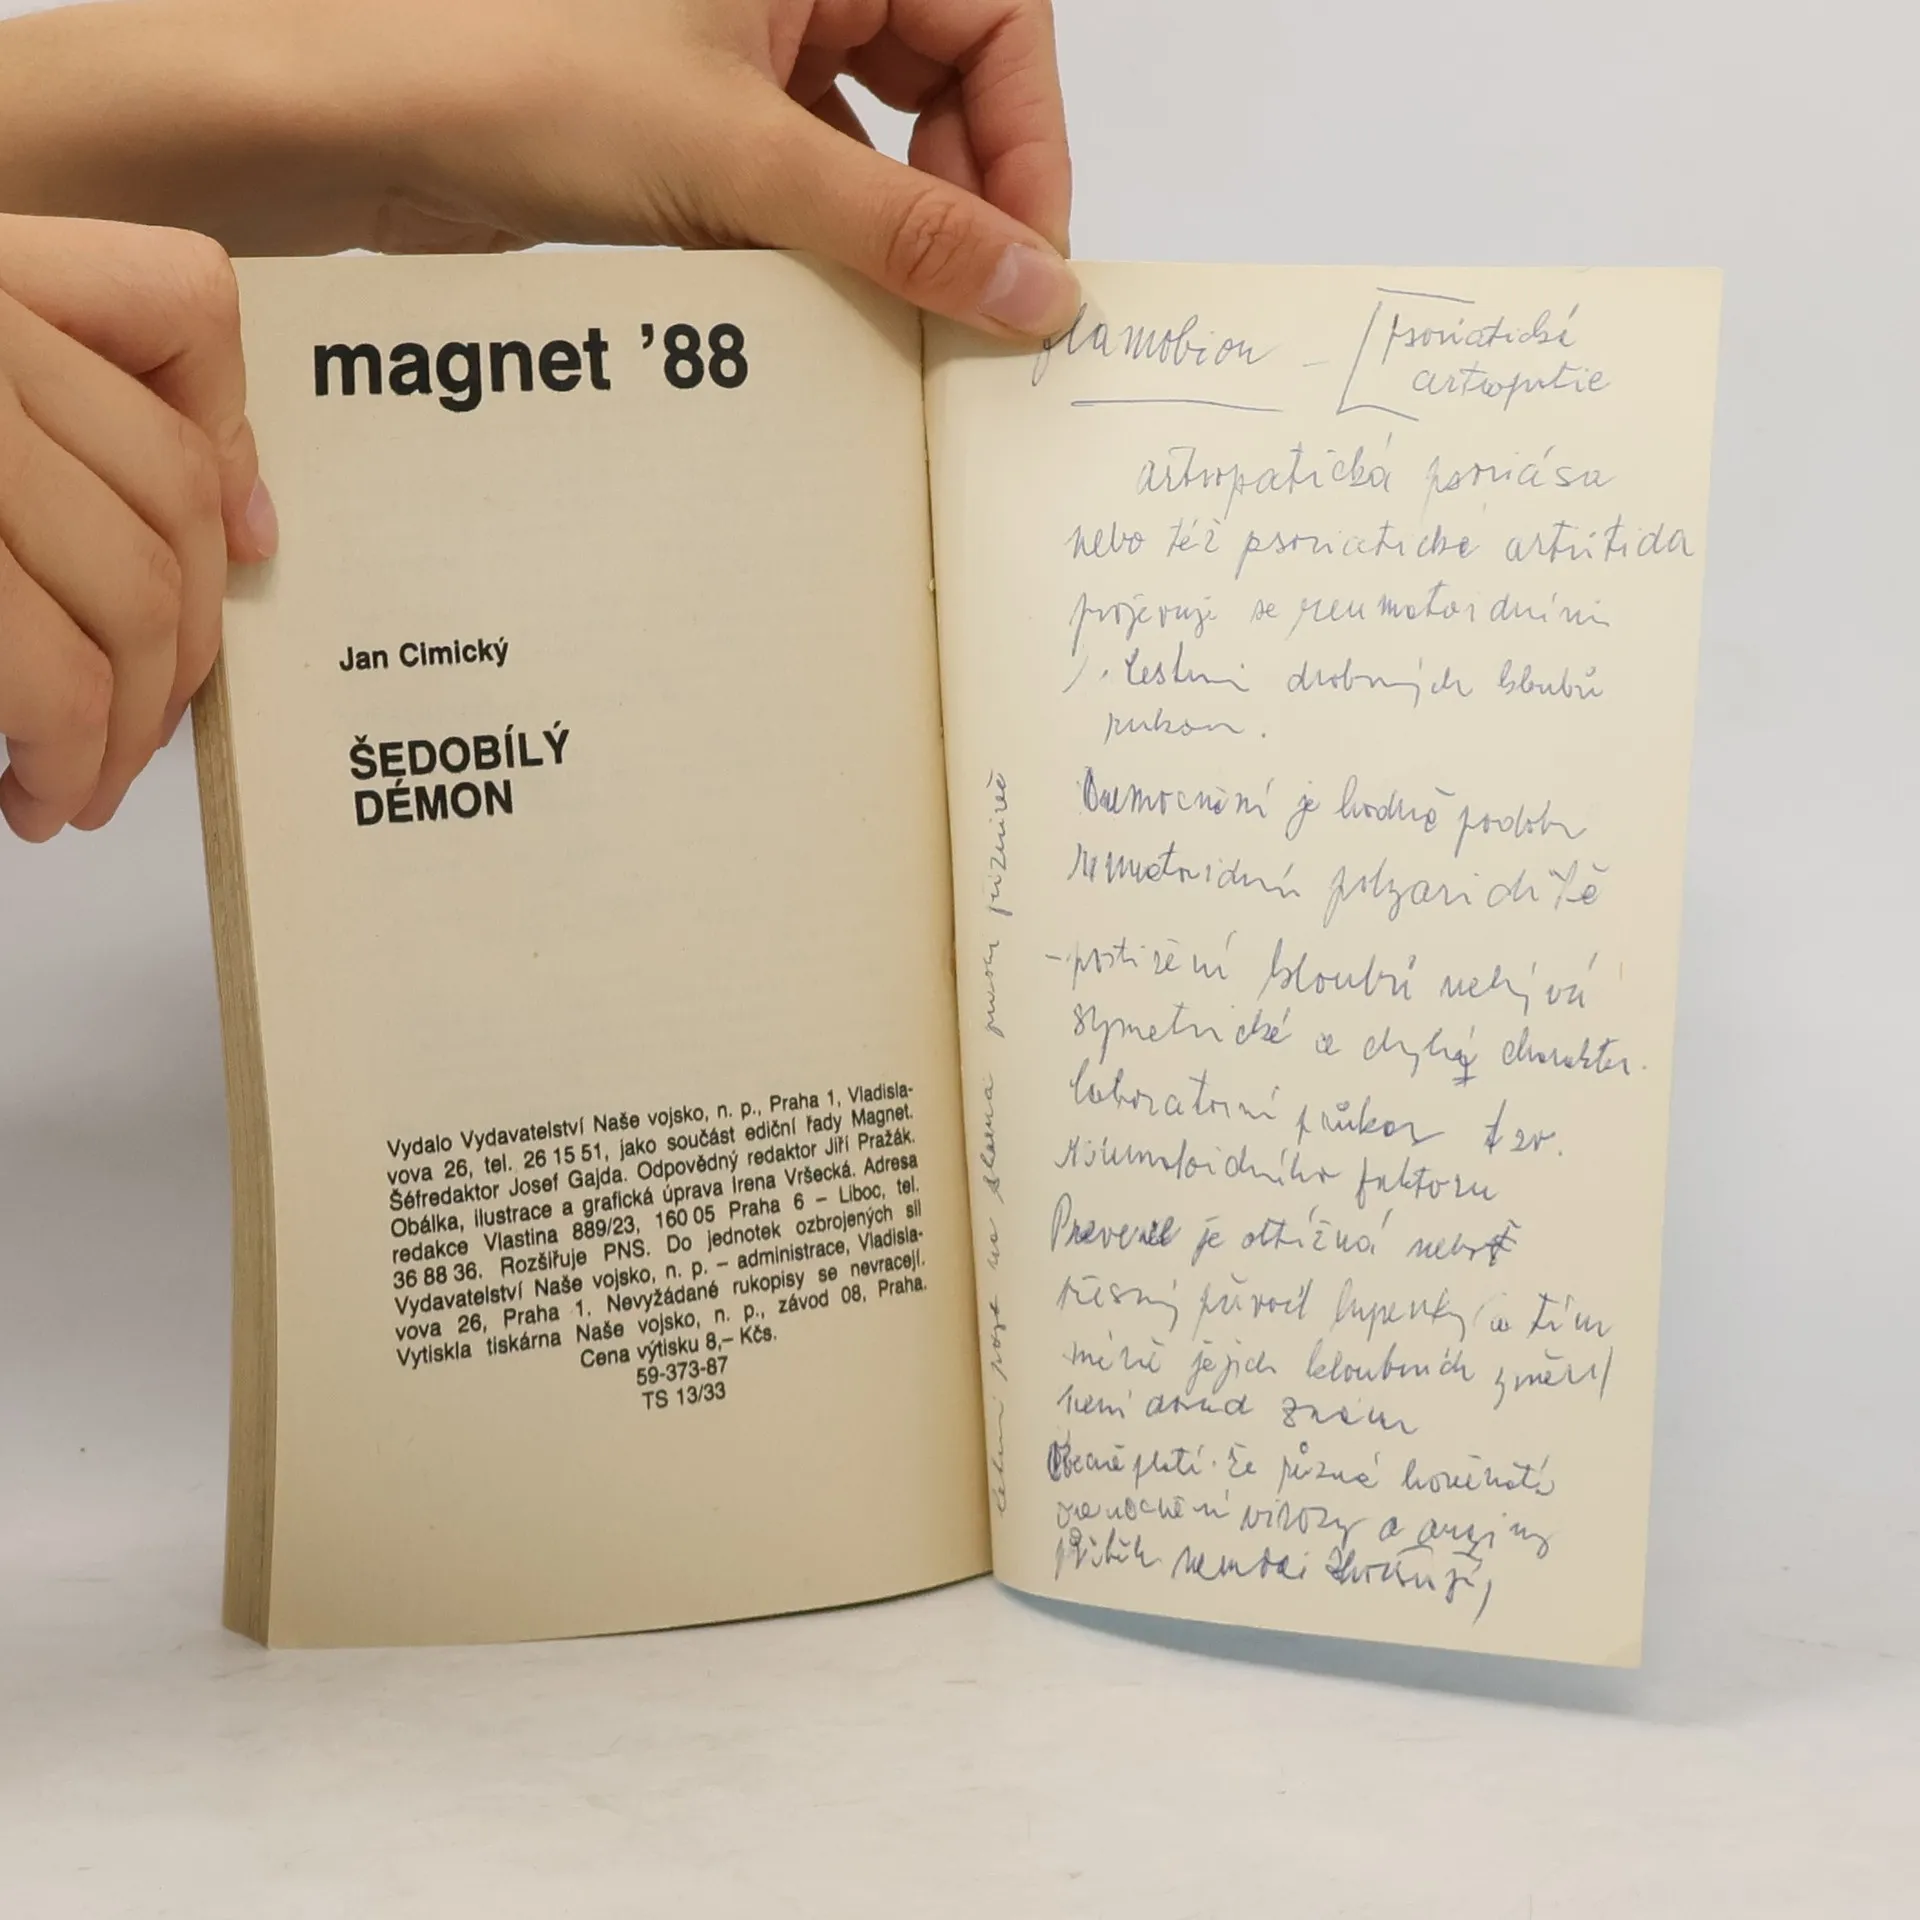 magnet ’88
Jan Cimický
ŠEDOBÍLÝ
DÉMON
Vydalo Vydavatelství Naše vojsko, n. p., Praha 1, Vladisla-
vova 26, tel. 26 15 51, jako součást ediční řady Magnet.
Šéfredaktor Josef Gajda. Odpovědný redaktor Jiří Pražák.
Obálka, ilustrace a grafická úprava Irena Vršecká. Adresa
redakce Vlastina 889/23, 160 05 Praha 6 – Liboc, tel.
36 88 36. Rozšiřuje PNS. Do jednotek ozbrojených sil
Vydavatelství Naše vojsko, n. p. – administrace, Vladisla-
vova 26, Praha 1. Nevyžádané rukopisy se nevracejí.
Vytiskla tiskárna Naše vojsko, n. p., závod 08, Praha.
Cena výtisku 8,– Kčs.
59-373-87
TS 13/33
psoriatická
artropatie
artropatická psoriása
nebo též psoriatická artritida
projevuje se reumatoidními
drobných kloubů
rukou.
Onemocnění je hodně podobn
postižení kloubů nebývá
symetrické a chybí charakter.
laboratorní průkaz tzv.
faktoru
Prevence je obtížná neboť
přesný původ lupenky (a tím
méně jejich kloubních změn)
není dosud znám
Obecně platí že různá horečnatá
onemocnění virózy a anginy
průběh nemoci zhoršují,